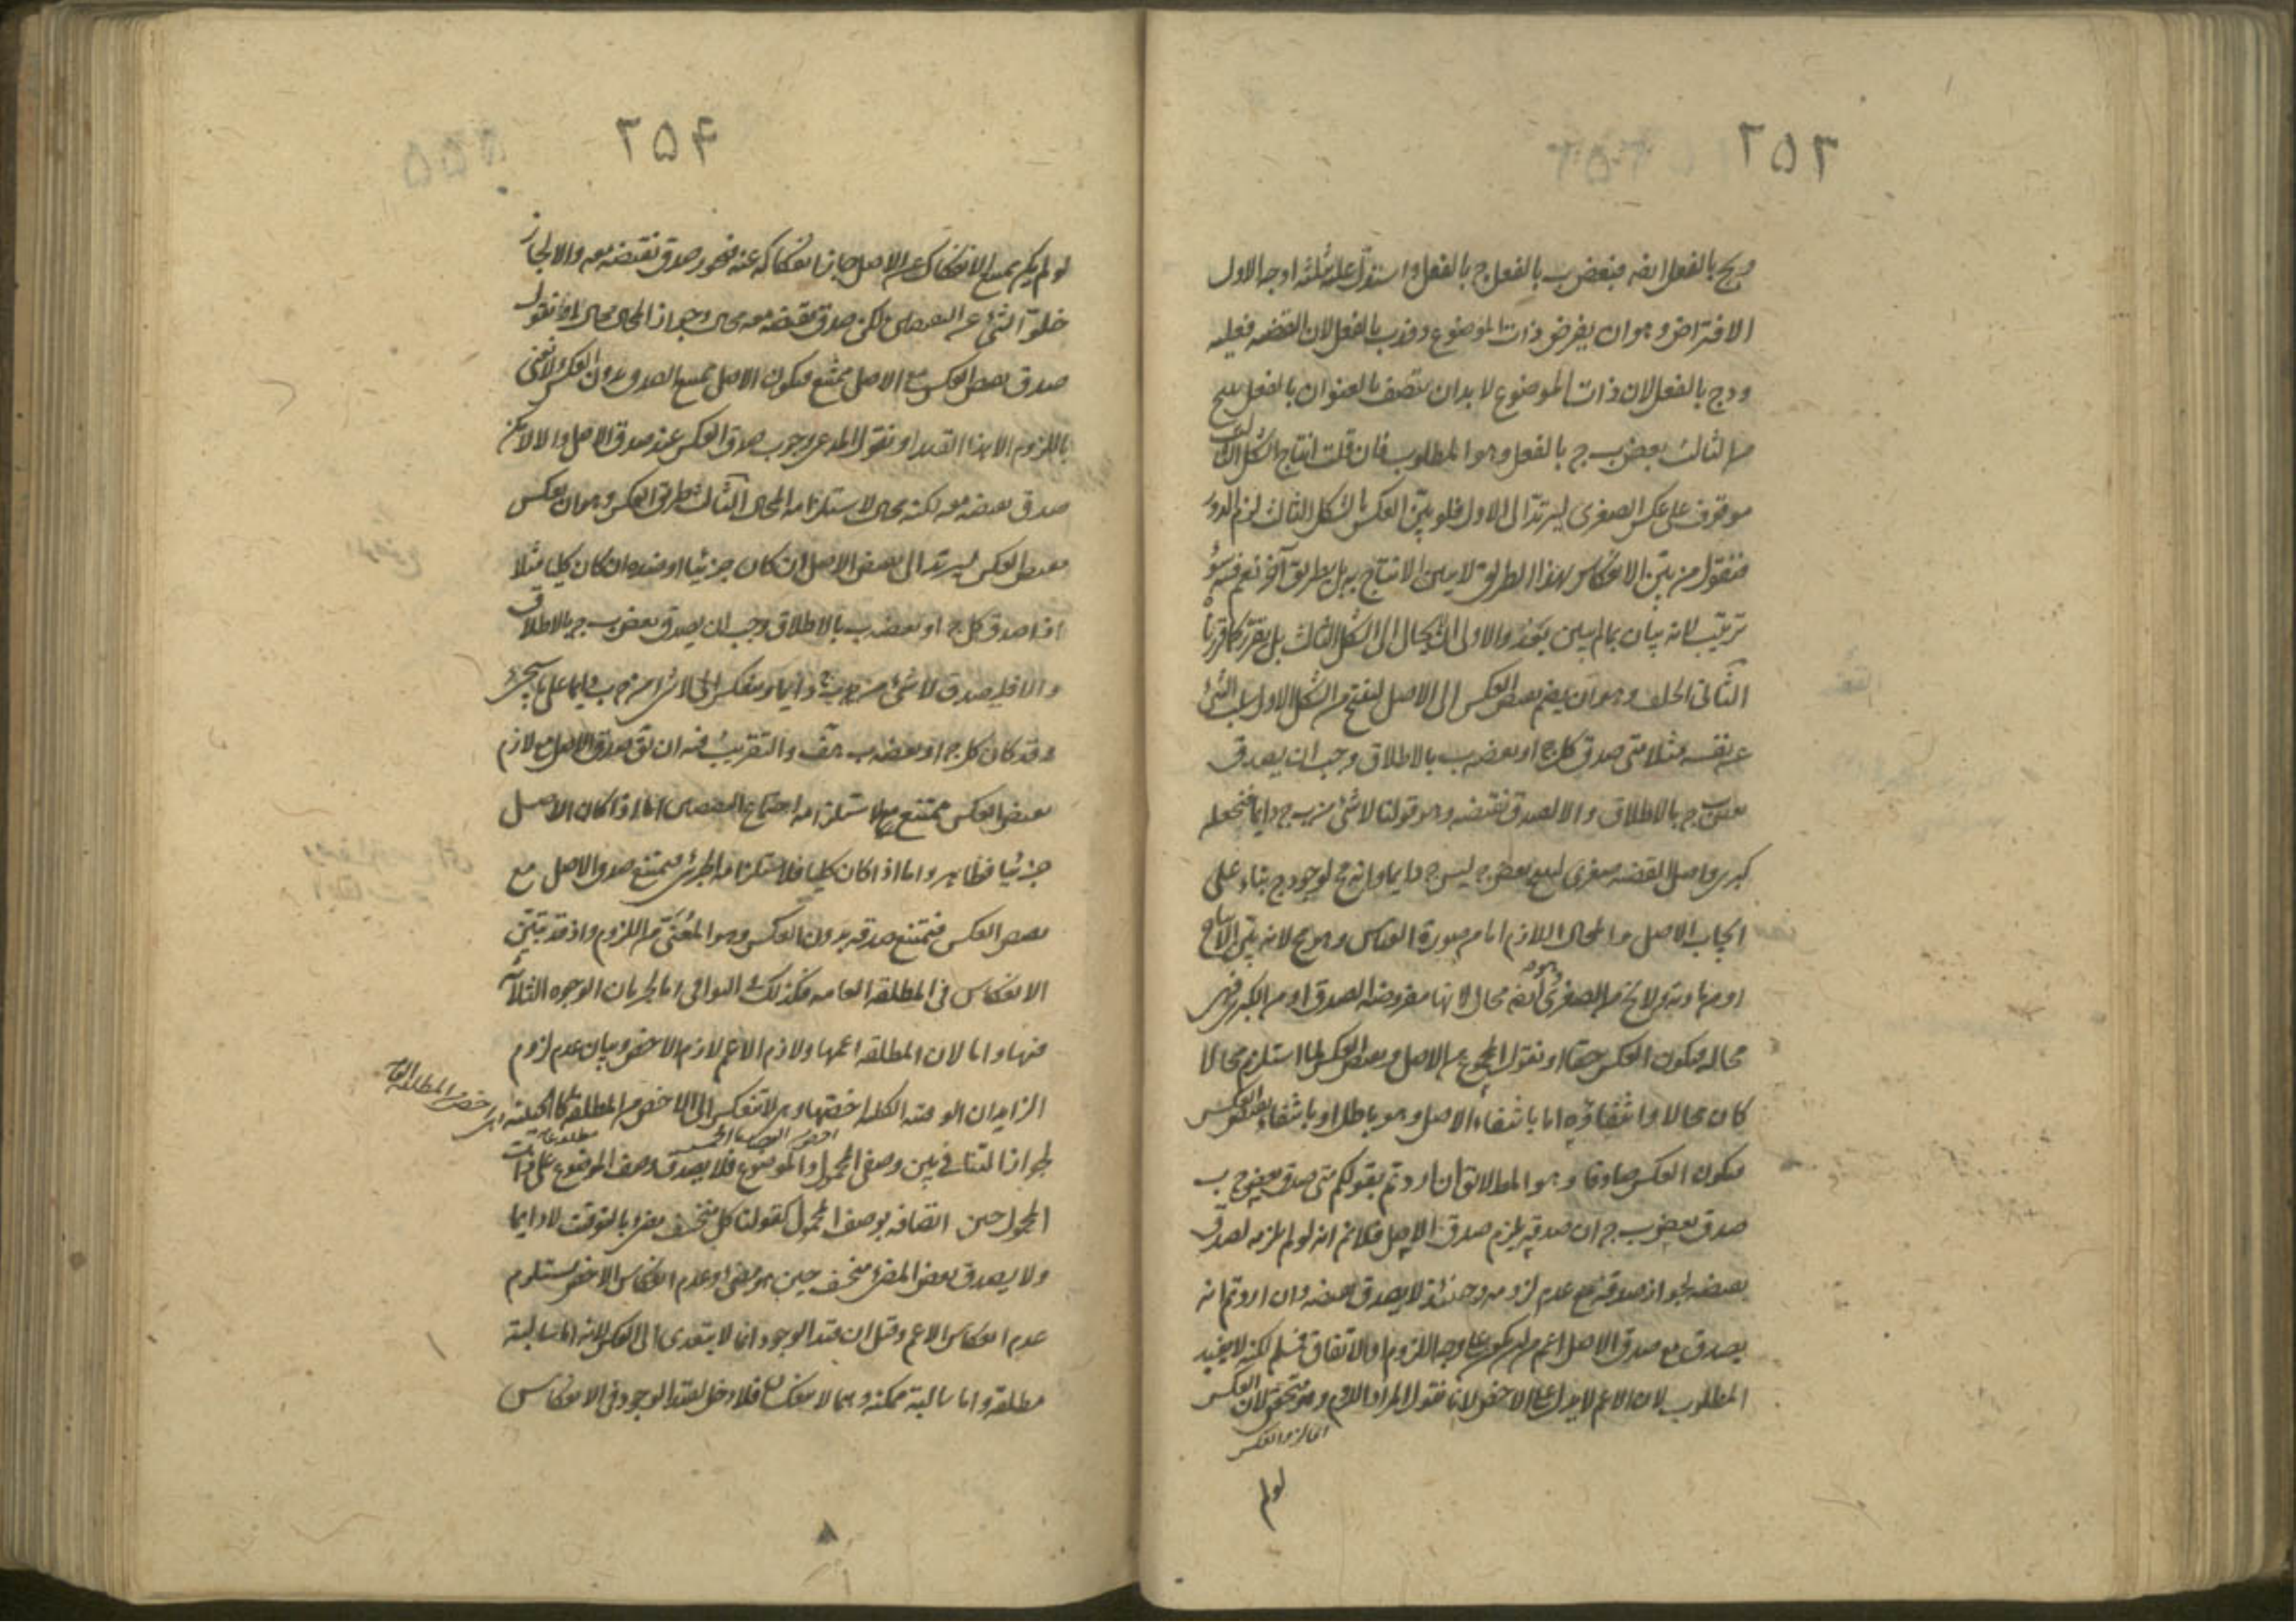 ۲۵۳
وج بالفعل ايضه فبعض ب بالفعل ج بالفعل واستدل عليه بثلثة اوجه الاول
الافتراض وهو ان يفرض ذات الموضوع د فدب بالفعل لان القضيه فعليه
ودج بالفعل لان ذات الموضوع لا بد ان يتصف بالعنوان بالفعل ينتج
من الثالث بعض ب ج بالفعل وهو المطلوب فان قلت انتاج الشكل الثالث
موقوف على عكس الصغرى ليرتد الى الاول فلو بيّن العكس بالشكل الثالث لزم الدور
فنقول من بيّن الانعكاس بهذا الطريق لا يبين الانتاج به بل بطريق آخر نعم فيه سؤ
ترتيب لانه بيان بما لم يبين بعد والاولى ان لا يحال الى الشكل الثالث بل يقرر كما قررنا
الثانى الخلف وهو ان يضم نقيض العكس الى الاصل لينتج من الشكل الاول سلب الشئ
عن نفسه مثلا متى صدق كل ج او بعضه ب بالاطلاق وجب ان يصدق
بعض ب ج بالاطلاق والا لصدق نقيضه وهو قولنا لا شئ من ب ج دايما فنجعله
كبرى واصل القضيه صغرى لينتج بعض ج ليس ج دايما وانه مح لوجود ج بناء على
ايجاب الاصل والمحال اللازم اما من صورة القياس وهو مح لانه بيّن الانتاج
او من مادته ولا يخ من الصغرى وهو ايضه محال لانها مفروضة الصدق او من الكبرى فهى
محاله فيكون العكس حقا او نقول المجموع من الاصل ونقيض العكس لما استلزم محالا
كان محالا وانتفاؤه اما بانتفاء الاصل وهو باطل او بانتفاء نقيض العكس
فيكون العكس صادقا وهو المط لا يق ان اردتم بقولكم متى صدق بعض ج ب
صدق بعض ب ج ان صدقه يلزم صدق الاصل فلا نم انه لو لم يلزمه لصدق
نقيضه لجواز صدقه مع عدم لزومه وحينئذ لا يصدق نقيضه وان اردتم انه
يصدق مع صدق الاصل اعم من ان يكون على وجه اللزوم او الاتفاق فمسلم لكنه لا يفيد
المطلوب لان الاعم لا يدل على الاخص لانا نقول المراد اللزوم وهو متحقق لان العكس
لو لم
۲۵۴
لو لم يكن ممتنع الانفكاك عن الاصل جاز انفكاكه عنه فيجوز صدق نقيضه معه والا لجاز
خلو الشئ عن النقيضين لكن صدق نقيضه معه محال وجواز المحال محال او نقول
صدق نقيض العكس مع الاصل ممتنع فيكون الاصل ممتنع الصدق بدون العكس ولا نعنى
باللزوم الا هذا القدر او نقول المدعى وجوب صدق العكس عند صدق الاصل والا لامكن
صدق نقيضه معه لكنه محال لاستلزامه المحال الثالث طريق العكس وهو ان يعكس
نقيض العكس ليرتد الى نقيض الاصل ان كان جزئيا او ضده ان كان كليا مثلا
اذا صدق كل ج او بعضه ب بالاطلاق وجب ان يصدق بعض ب ج بالاطلاق
والا فليصدق لا شئ من ب ج دايما وينعكس الى لا شئ من ج ب دايما على ما سيجئ
وقد كان كل ج او بعضه ب هف والتقريب فيه ان يق صدق الاصل مع لازم
نقيض العكس ممتنع لاستلزامه اجتماع النقيضين اما اذا كان الاصل
جزئيا فظاهر واما اذا كان كليا فلاستلزامه الجزئى فيمتنع صدق الاصل مع
نقيض العكس فيمتنع صدقه بدون العكس وهو المعنى من اللزوم واذ قد تبيّن
الانعكاس فى المطلقه العامه فكذلك فى البواقى اما لجريان الوجوه الثلاثة
فيها واما لان المطلقه اعمها ولازم الاعم لازم الاخص وبيان عدم لزوم
الزايد ان الوقتيه الكليه اخصها وهى لا تنعكس الى الاخص من المطلقه كالحينيه
لجواز التنافى بين وصفى المحمول والموضوع فلا يصدق وصف الموضوع على ذات
المحمول حين اتصافه بوصف المحمول كقولنا كل منخسف مضئ بالتوقيت لا دايما
ولا يصدق بعض المضئ منخسف حين هو مضئ وعدم انعكاس الاخص يستلزم
عدم انعكاس الاعم وقيل ان قيد الوجود انما لا يتعدى الى العكس لانه اما سالبة
مطلقه واما سالبة ممكنه وهما لا ينعكسان فلا دخل لقيد الوجود فى الانعكاس